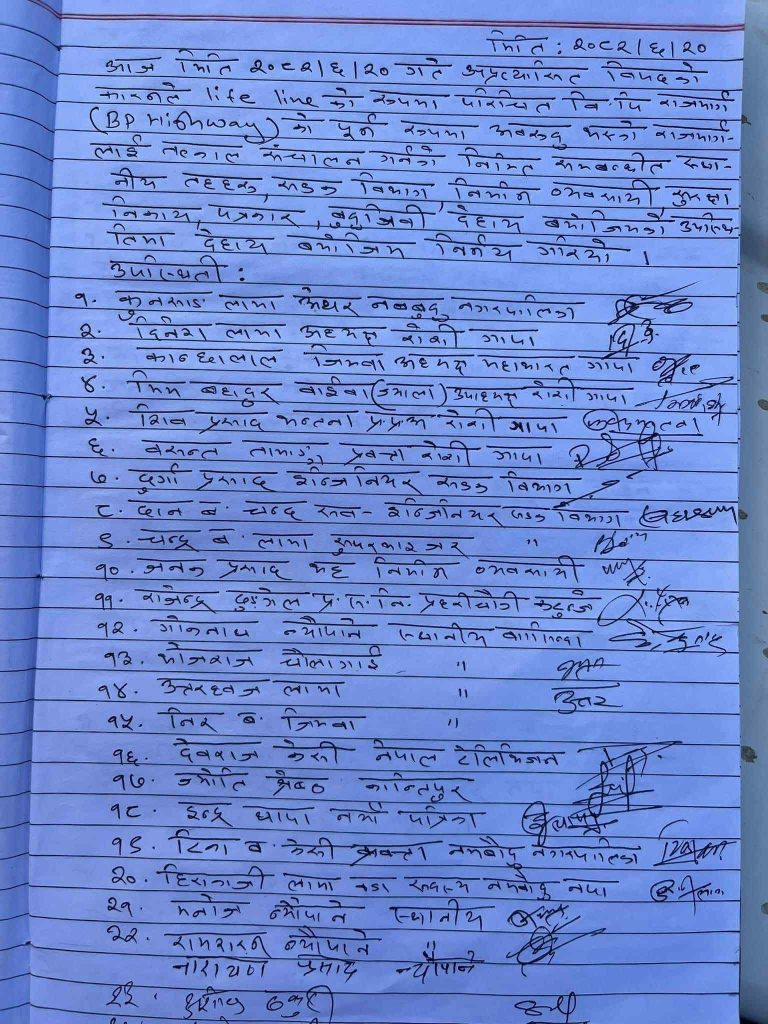 मिति : २०८२/६/२०
आज मिति २०८२/६/२० गते अप्रत्यासित विपदको
कारणले life line को रुपमा परिचित वि.पि राजमार्ग
(BP Highway) को पूर्ण रुपमा अवरुद्ध भएको राजमार्ग-
लाई तत्काल संचालन गर्नको निमित्त सम्बन्धीत स्था-
नीय तहहरु, सडक विभाग, निर्माण व्यवसायी, सुरक्षा
निकाय, पत्रकार, बुद्धिजिवी देहाय बमोजिमको उपस्थि-
तिमा देहाय बमोजिम निर्णय गरियो ।
उपस्थिती :
१. कुनसाङ लामा मेयर नमोबुद्ध नगरपालिका
२. दिनेश लामा अध्यक्ष रोशी गापा
३. कान्छालाल जिम्बा अध्यक्ष महाभारत गापा
४. मिम बहादुर वाईबा (उमाला) उपाध्यक्ष रोशी गापा
५. शिव प्रसाद प्र.प्र.अ रोशी गापा
६. वसन्त तामाङ, प्रवक्ता रोशी गापा
७. दुर्गा प्रसाद इन्जिनियर सडक विभाग
८. दान ब. चन्द सब-इन्जिनियर सडक विभाग
९. चन्द्र ब. लामा सुपरभाइजर "
१०. जनक प्रसाद भट्ट निर्माण व्यवसायी
११. राजेन्द्र ढुङ्गेल प्र.स.नि. प्रहरीचौकी
१२. गोकनाथ न्यौपाने स्थानीय बासिन्दा
१३. भोजराज चौलागाई "
१४. उत्तरध्वज लामा " उत्तर
१५. जित ब. जिम्बा "
१६. देवराज केसी नेपाल टेलिभिजन
१७. ज्योति श्रेष्ठ कान्तिपुर
१८. इन्द्र थापा नयाँ पत्रिका
१९. टिका ब. केसी प्रवक्ता नमोबुद्ध नगरपालिका
२०. हिराकाजी लामा वडा सदस्य नमोबुद्ध नपा
२१. मनोज न्यौपाने स्थानीय
२२. रामशरण न्यौपाने "
नारायण प्रसाद न्यौपाने
२३.